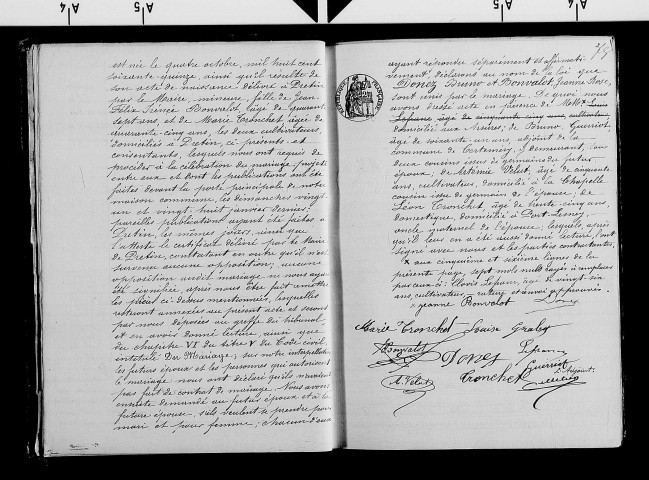 est née le quatre octobre, mil huit cent
soixante-quinze, ainsi qu'il résulte de
son acte de naissance délivré à Pretin
par le Maire, mineure, fille de Jean-
Félix Irénée Bonvalot, âgé de quarante
sept ans, et de Marie Tronchet âgée de
quarante-cinq ans, les deux cultivateurs,
domiciliés à Pretin, ci-présents et
consentants, lesquels nous ont requis de
procéder à la célébration du mariage projeté
entre eux et dont les publications ont été
faites devant la porte principale de notre
maison commune, les dimanches vingt
un et vingt huit janvier dernier,
pareilles publications ayant été faites à
Pretin, les mêmes jours, ainsi que
l'atteste le certificat délivré par le Maire
de Pretin, constatant en outre qu'il n'est
survenu aucune opposition; aucune
opposition audit mariage ne nous ayant
été signifiée, après nous être fait remettre
les pièces ci-dessus mentionnées, lesquelles
resteront annexées au présent acte et seront
par nous déposées au greffe du tribunal
et en avoir donné lecture, ainsi que
du chapitre VI du titre V du Code civil,
intitulé Du Mariage; sur notre interpellation
les futurs époux et les personnes qui autorisent
le mariage nous ont déclaré qu'ils n'avaient
pas fait de contrat de mariage. Nous avons
ensuite demandé au futur époux et à la
future épouse, s'ils veulent se prendre pour
mari et pour femme; chacun d'eux
ayant répondu séparément et affirmati-
vement, déclarons au nom de la loi que
Donez Bruno et Bonvalot, Jeanne Rose,
sont unis par le mariage. De quoi nous
avons dressé acte en présence de
Lepeau, âgé de cinquante cinq ans, cultivateur
domicilié aux Arsures, de Bruno Guerriot,
âgé de soixante-six ans, adjoint de la
commune, y demeurant, tous
deux cousins issus de germains du futur
époux, de Artémie Velut, âgé de cinquante
ans, cultivateur, domicilié à la Chapelle
cousin issu de germain de l'épouse, de
Léon Tronchet, âgé de trente cinq ans,
domestique, domicilié à Port-Lesney,
oncle maternel de l'épouse; lesquels, après
qu'il leur en a été aussi donné lecture, ont
signé avec nous et les parties contractantes.
x aux cinquième et sixième lignes de la
présente page, sept mots nuls rayés à remplacer
par ceux-ci: Clovis Lepeau, âgé de vingt-six
ans cultivateur, rature et renvoi approuvés.
Jeanne Bonvalot Donez
Marie Tronchet Louise Graby
Bonvalot Donez Lepeau
A. Velut Tronchet Guerriot
L'Adjoint